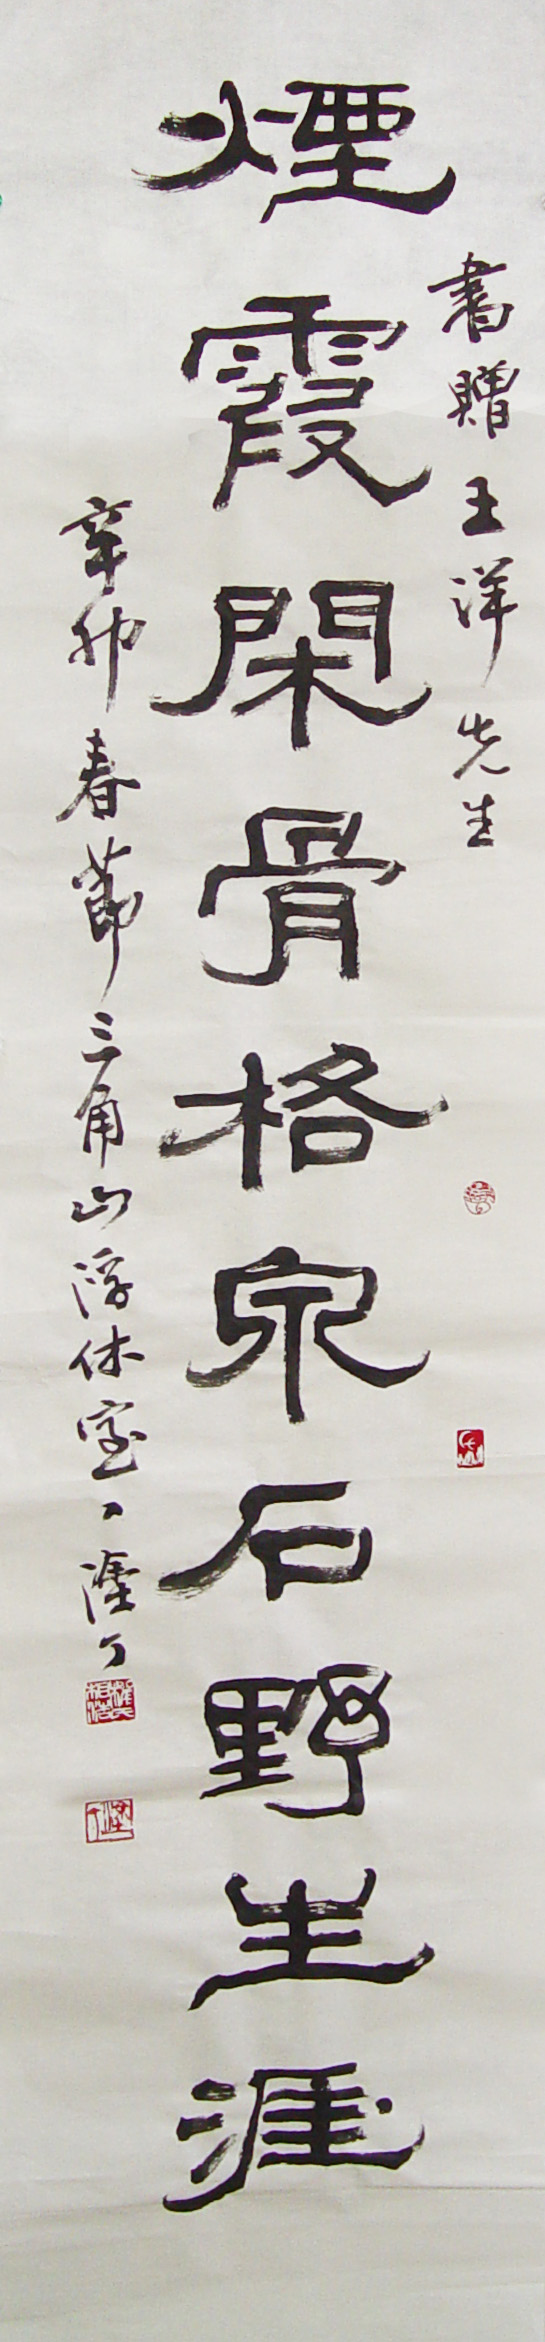 書贈王洋先生
煙霞閑骨格泉石野生涯
辛卯春節三角山浮休室